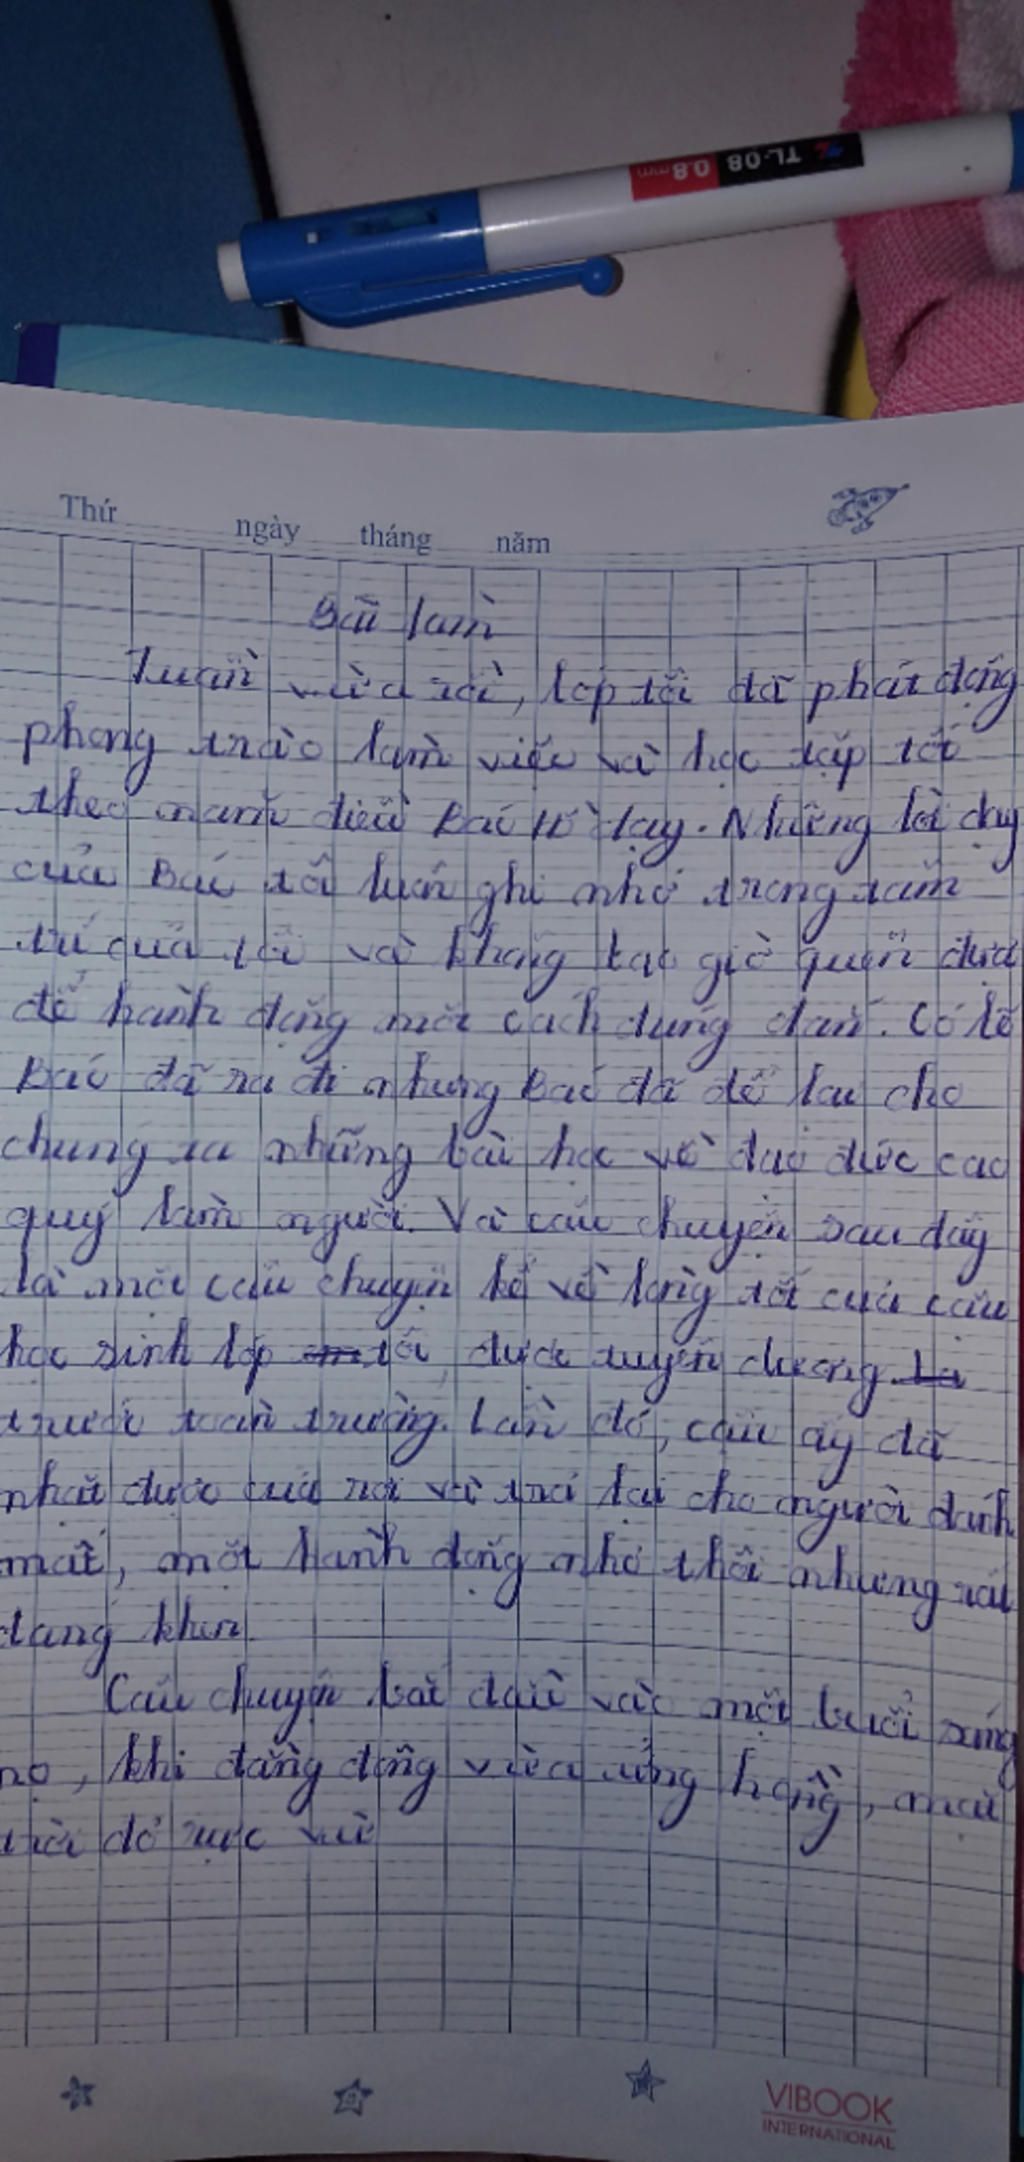 TL-08 0.8mm
Thứ ngày tháng năm
Bài làm
Tuần vừa rồi, lớp tôi đã phát động
phong trào làm việc và học tập tốt
theo năm điều Bác Hồ dạy. Những lời dạy
của Bác tôi luôn ghi nhớ trong tâm
trí của tôi và không bao giờ quên được
để hành động một cách đúng đắn. Có lẽ
Bác đã ra đi nhưng Bác đã để lại cho
chúng ta những bài học về đạo đức cao
quý làm người. Và câu chuyện sau đây
là một câu chuyện kể về lòng tốt của cậu
học sinh lớp tôi, được tuyên dương
trước toàn trường. Lần đó, cậu ấy đã
nhặt được của rơi và trả lại cho người đánh
mất, một hành động nhỏ thôi nhưng rất
đáng khen
Câu chuyện bắt đầu vào một buổi sáng
nọ, khi đằng đông vừa ửng hồng, mặt
trời đỏ rực vừa
VIBOOK
INTERNATIONAL